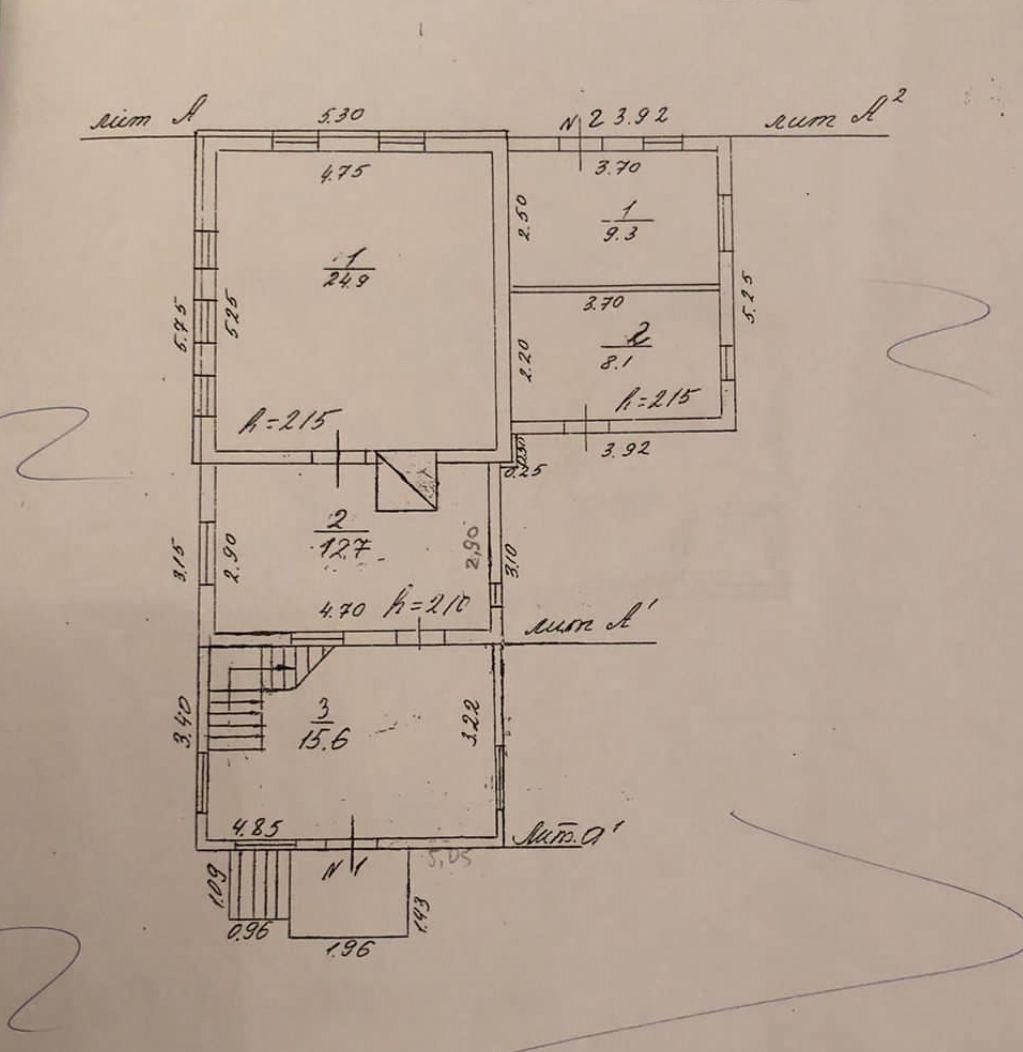 лит А
5.30
N 2 3.92
лит А²
4.75
3.70
2.50
1
9.3
1
24.9
5.75
5.25
5.25
3.70
2.20
2
8.1
h=215
h=215
3.92
0.25
2
12.7
3.15
2.90
2,90
3.10
4.70
h=210
лит А¹
3.40
3
15.6
3.22
4.85
N 1
Лит. а¹
5,05
1.09
0.96
1.43
1.96